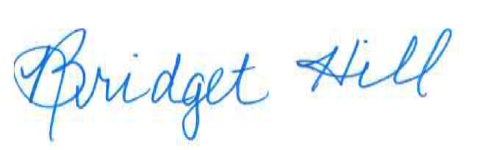 Bridget Hill